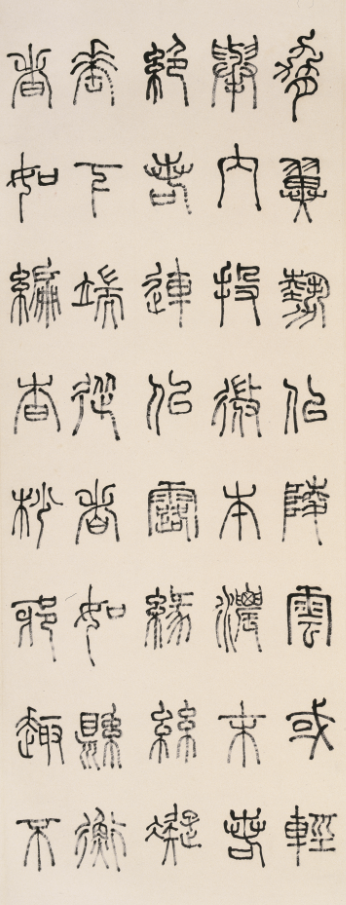 翼勢似陵雲或輕
舉內投微本濃末若
絕若連似露緣絲凝
垂下端從者如縣衡
者如編杳杪邪趣不